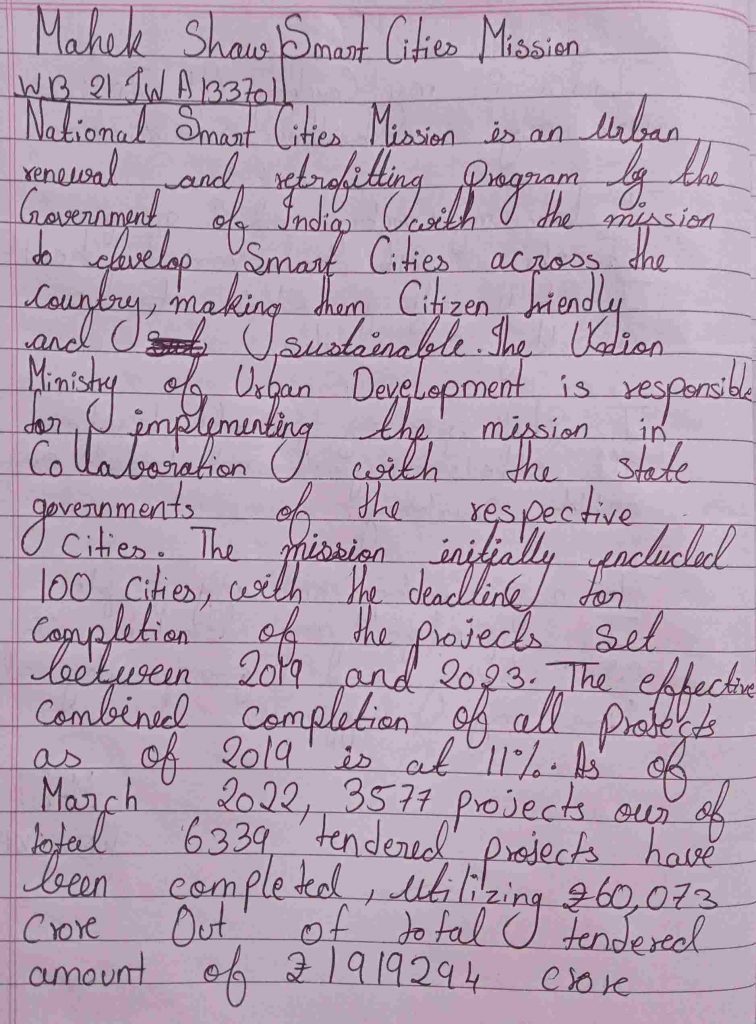 Mahek Shaw Smart Cities Mission
WB 21 JWA 133701
National Smart Cities Mission is an Urban
renewal and retrofitting program by the
Government of India with the mission
to develop Smart Cities across the
Country, making them Citizen friendly
and sustainable. The Union
Ministry of Urban Development is responsible
for implementing the mission in
Collaboration with the state
governments of the respective
Cities. The mission initially included
100 Cities, with the deadline for
Completion of the projects set
between 2019 and 2023. The effective
Combined completion of all projects
as of 2019 is at 11%. As of
March 2022, 3577 projects our of
total 6339 tendered projects have
been completed, utilizing ₹60,073
Crore Out of total tendered
amount of ₹1919294 crore